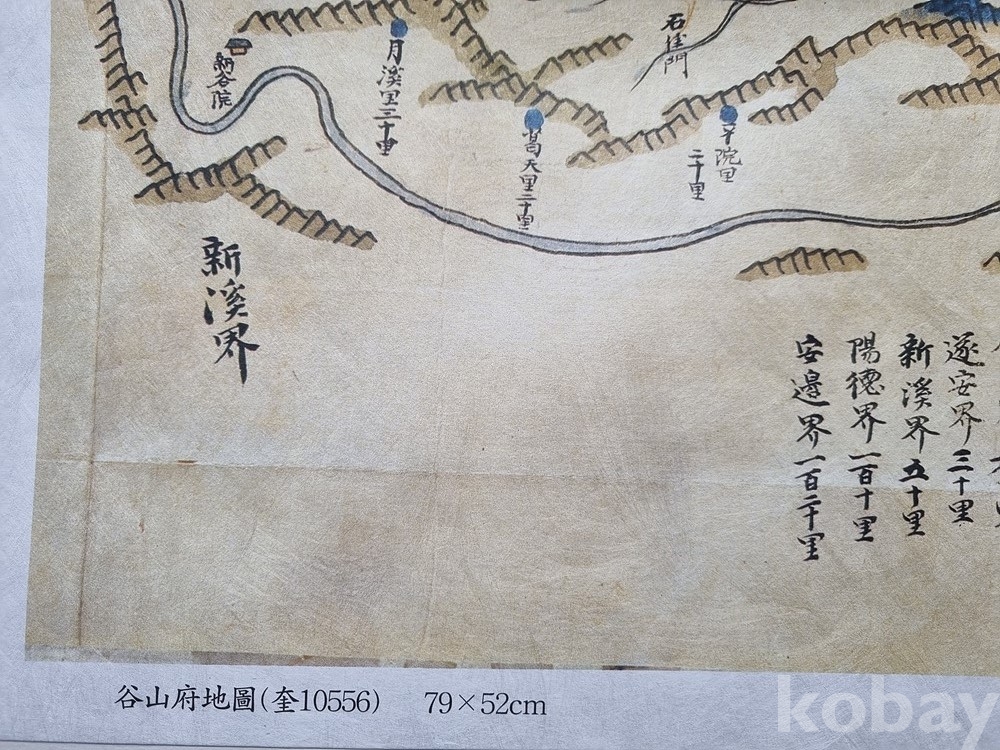 石隅門
新谷院
月溪里三十里
葛天里三十里
辛院里
二十里
新溪界
遂安界三十里
新溪界五十里
陽德界一百十里
安邊界一百二十里
谷山府地圖(奎10556) 79×52cm
kobay